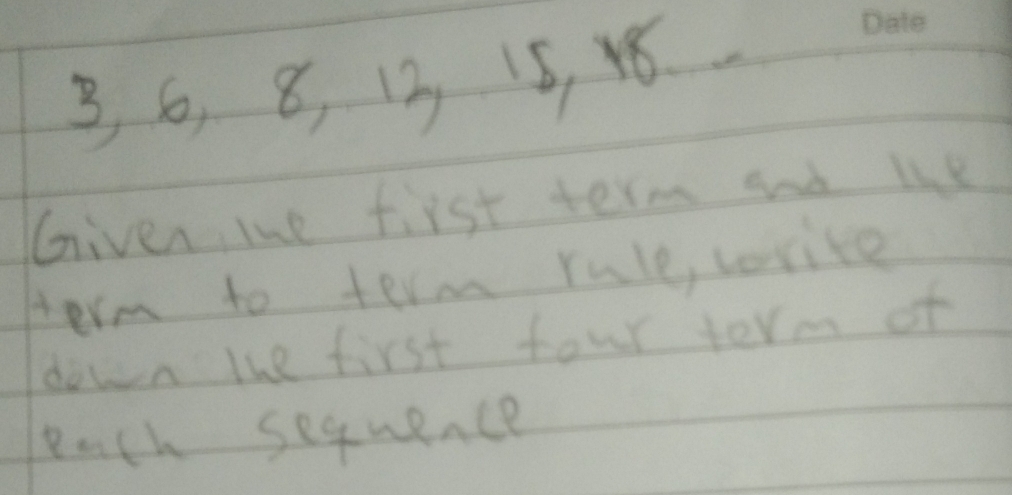 Date
3, 6, 8, 12, 15, 18 - -
Given the first term and the
term to term rule, write
down the first four term of
each sequence